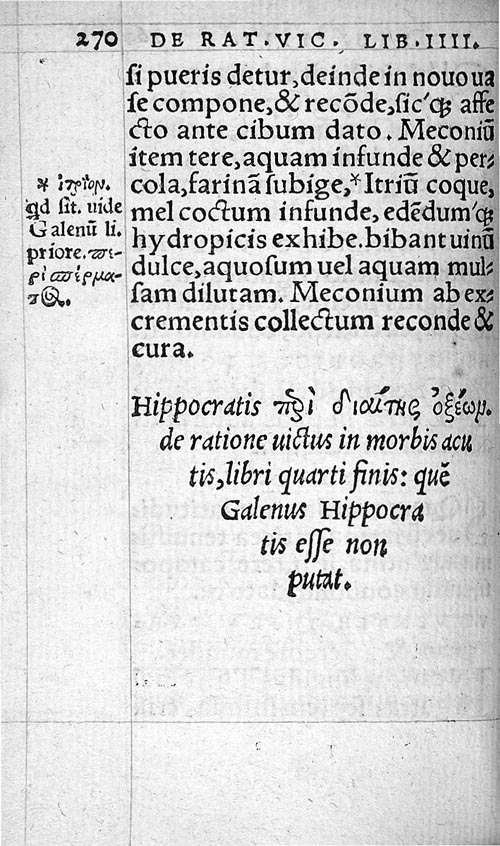 270 DE RAT.VIC. LIB.IIII.
si pueris detur, deinde in nouo ua
se compone, & recōde, sic'q; affe
cto ante cibum dato. Meconiū
item tere, aquam infunde & per-
cola, farinā subige,* Itriū coque,
mel coctum infunde, edēdum'q;
hydropicis exhibe. bibant uinū
dulce, aquosum uel aquam mul-
sam dilutam. Meconium ab ex-
crementis collectum reconde &
cura.
* ἰτρίον.
qd sit. uide
Galenū li.
priore. πε-
ρὶ σπέρμα-
τος.
Hippocratis περὶ διαίτης ὀξέων.
de ratione uictus in morbis acu
tis, libri quarti finis: quē
Galenus Hippocra
tis esse non
putat.